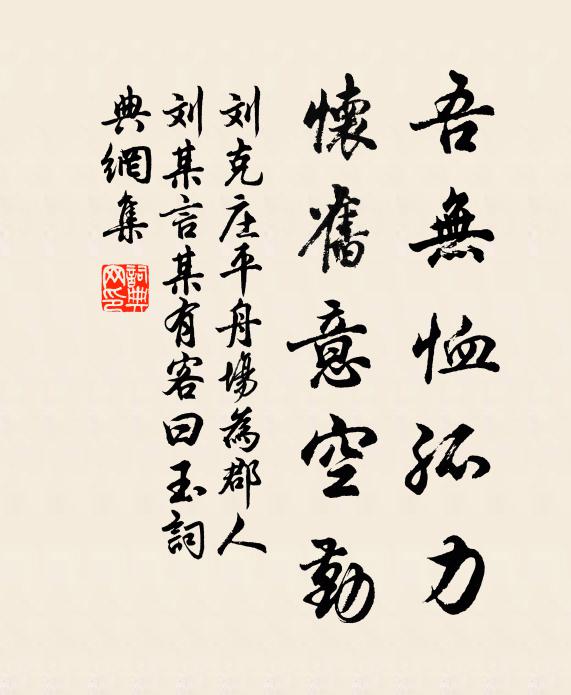 吾無恤孤力
懷舊意空勤
刘克庄平舟塲為郡人
刘某言某有客曰玉詞
典網集
詞典
网印